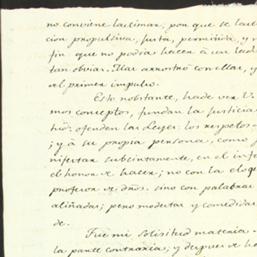 no conviene lastimar; por que se
cion propulsiva, justa, permitida, y
fin que no podia hacer á un
tan obviar. Mas arrostró con ellas, y
el primer impulso.
Esto nobstante, hade ver V.
mos conceptos, fundan la justicia
ofenden las Leyes: los respetos
; y á su propia persona, como
nifestar subcintamente, en el
el honor de hacer; no con la
profesor de dros. sino con palabras
aliñadas; pero modestas y comedidas
de.
Fué mi solicitud
la parte contraria; y despues de